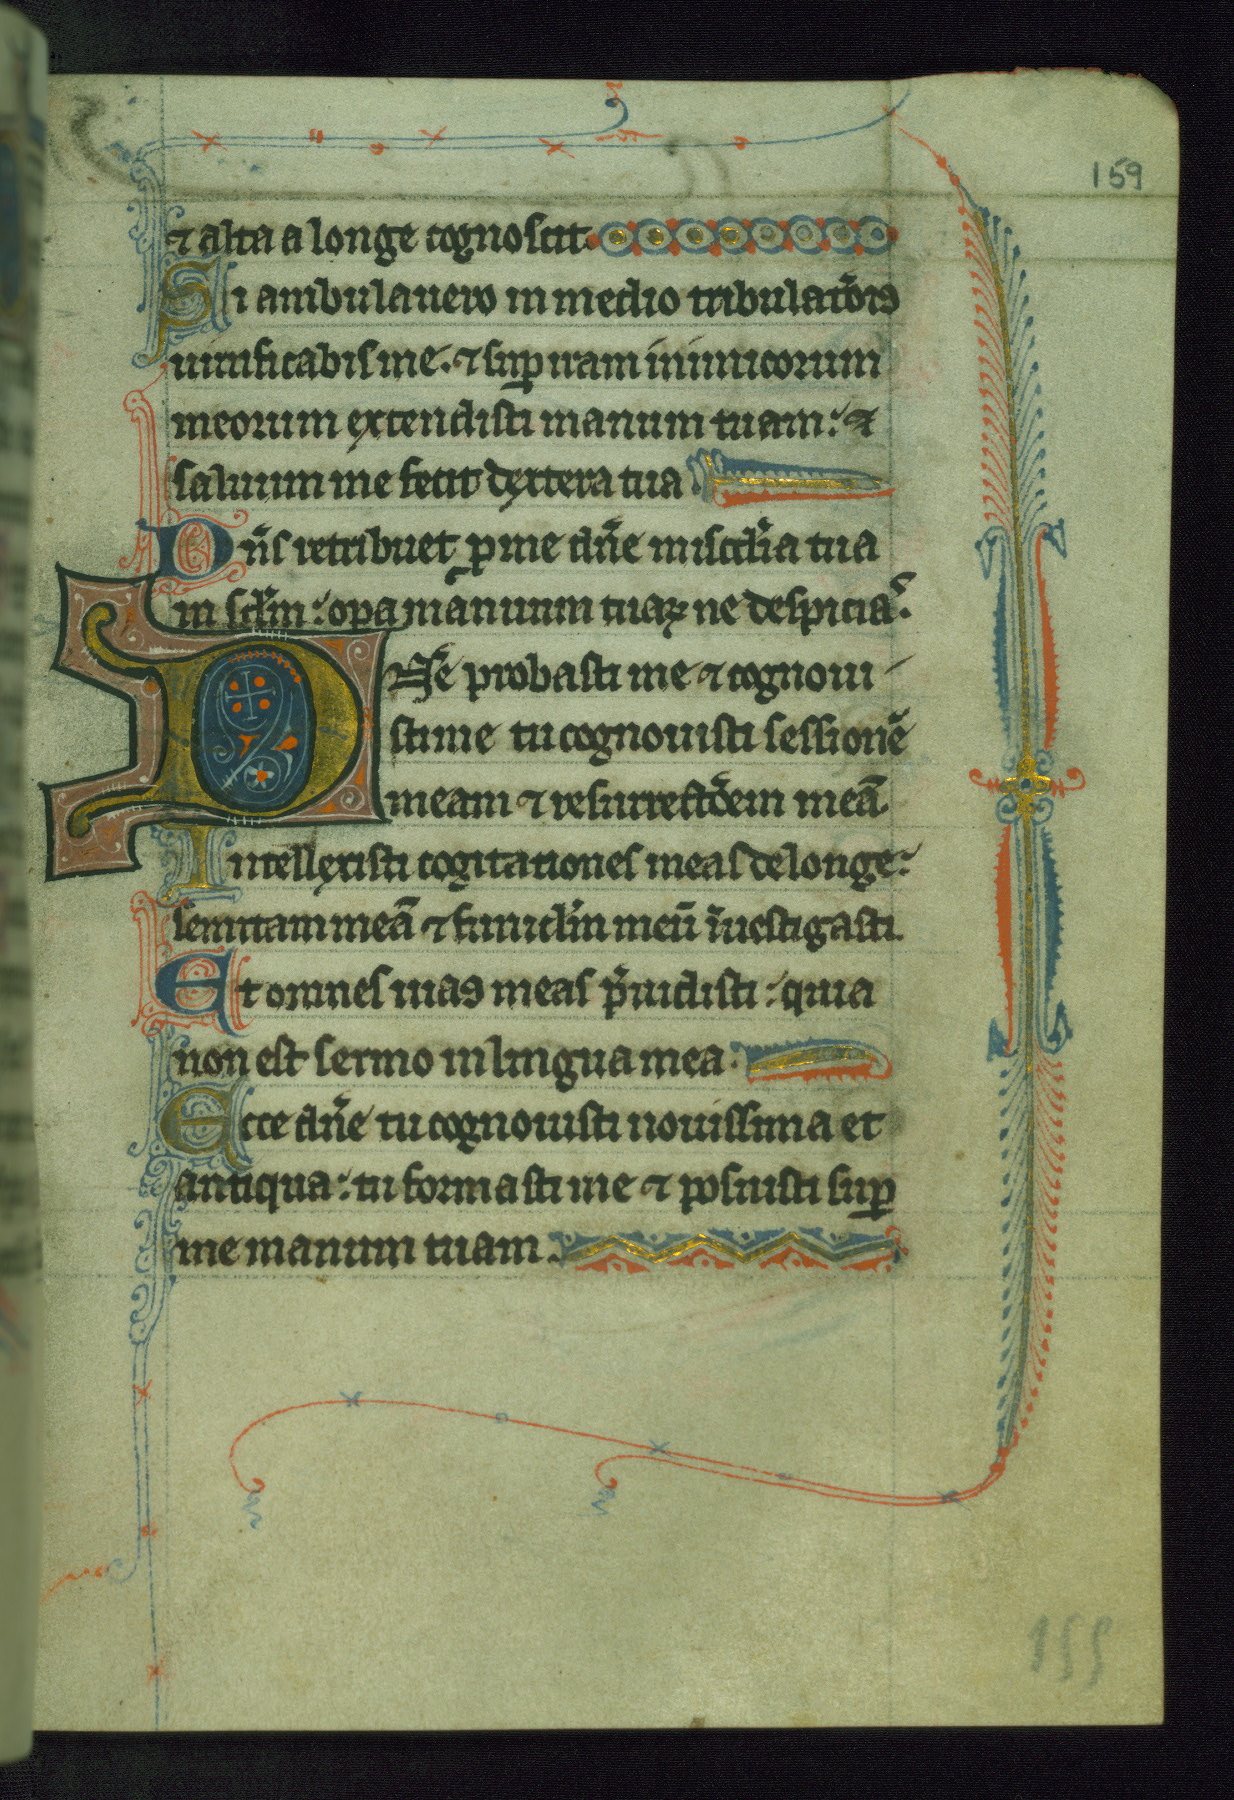 159
⁊ alta a longe cognoscit.
Si ambulauero in medio tribulatōis
uiuificabis me. ⁊ suꝑ iram inimicorum
meorum extendisti manum tuam: ⁊
saluum me fecit dextera tua
Dn̄s retribuet ꝓ me dn̄e misc̄dia tua
in sc̄lm: opa manuum tuaꝝ ne despicias.
Dn̄e probasti me ⁊ cognoui
sti me tu cognouisti sessionē
meam ⁊ resurrectōem meā
Intellexisti cogitationes meas de longe:
semitam meā ⁊ funicl̄m meū īuestigasti
Et omnes uias meas p̄uidisti: quia
non est sermo in lingua mea.
Ecce dn̄e tu cognouisti nouissima et
antiqua: tu formasti me ⁊ posuisti suꝑ
me manum tuam.
155